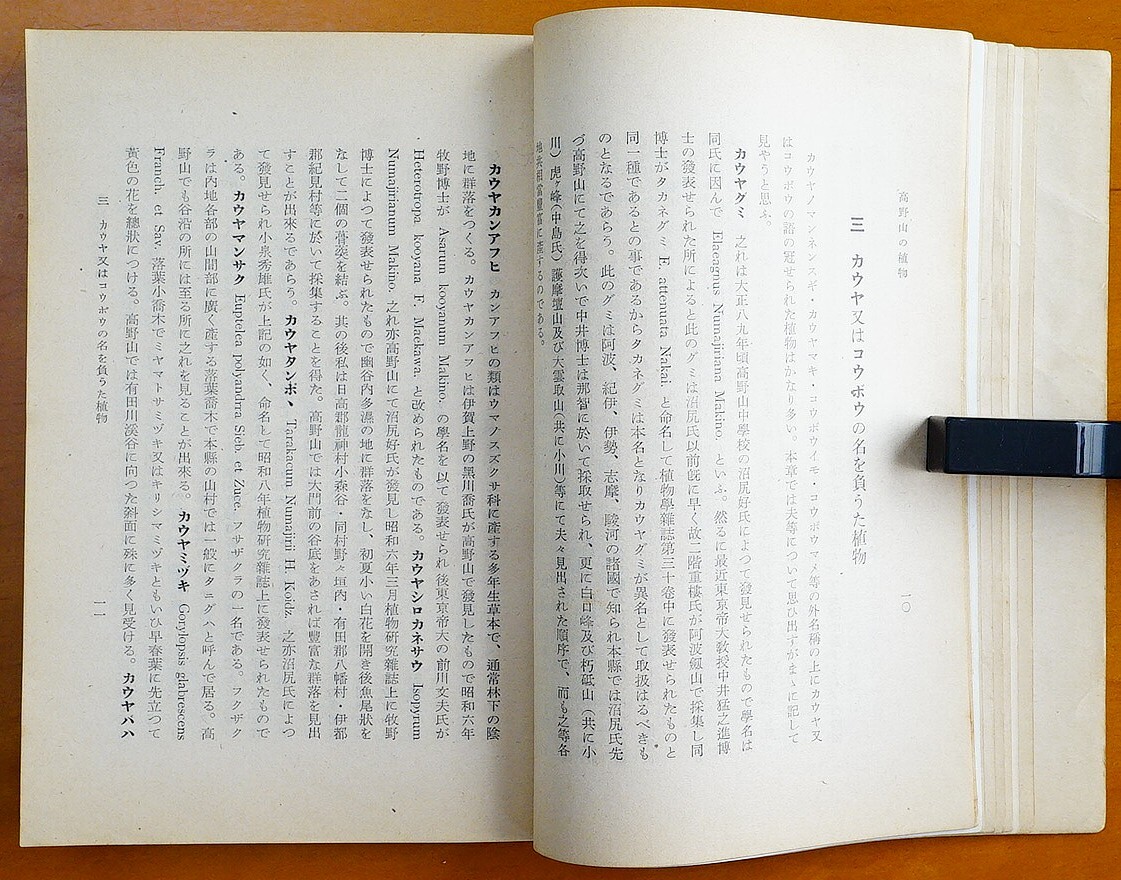 高野山の植物
一〇
三　カウヤ又はコウボウの名を負うた植物
カウヤノマンネンスギ・カウヤマキ・コウボウイモ・コウボウマメ等の外名稱の上にカウヤ又
はコウボウの諸の冠せられた植物はかなり多い。本章では夫等について思ひ出すがまゝに記して
見やうと思ふ。
カウヤグミ　之れは大正八九年頃高野山中學校の沼尻好氏によつて發見せられたもので學名は
同氏に因んで Elaeagnus Numajiriana Makino. といふ。然るに最近東京帝大敎授中井猛之進博
士の發表せられた所によると此のグミは沼尻氏以前旣に早く故二階重樓氏が阿波劒山で採集し同
博士がタカネグミ E. attenuata Nakai. と命名して植物學雜誌第三十卷中に發表せられたものと
同一種であるとの事であるからタカネグミは本名となりカウヤグミが異名として取扱はるべきも
のとなるであらう。此のグミは阿波、紀伊、伊勢、志摩、駿河の諸國で知られ本縣では沼尻氏先
づ高野山にて之を得次いで中井博士は那智に於いて採取せられ、更に白口峰及び朽砥山（共に小
川）虎ヶ峰（中島氏）護摩壇山及び大雲取山（共に小川）等にて夫々見出された順序で、而も之等各
地共相當豐富に産するのである。
カウヤカンアフヒ　カンアフヒの類はウマノスズクサ科に産する多年生草本で、通常林下の陰
地に群落をつくる。カウヤカンアフヒは伊賀上野の黑川喬氏が高野山で發見したもので昭和六年
牧野博士が Asarum kooyanum Makino. の學名を以て發表せられ後東京帝大の前川文夫氏が
Heterotropa kooyana F. Maekawa. と改められたものである。カウヤシロカネサウ Isopyrum
Numajirianum Makino. 之れ亦高野山にて沼尻好氏が發見し昭和六年三月植物研究雜誌上に牧野
博士によつて發表せられたもので幽谷內多濕の地に群落をなし、初夏小い白花を開き後魚尾狀を
なして二個の蓇葖を結ぶ。其の後私は日高郡龍神村小森谷・同村野々垣內・有田郡八幡村・伊都
郡紀見村等に於いて採集することを得た。高野山では大門前の谷底をあされば豐富な群落を見出
すことが出來るであらう。カウヤタンポヽ Tarakacum Numajirii H Koidz. 之亦沼尻氏によつ
て發見せられ小泉秀雄氏が上記の如く、命名して昭和八年植物研究雜誌上に發表せられたもので
ある。カウヤマンサク Euptelea polyandrra Sieb. et Zucc. フサザクラの一名である。フクザク
ラは內地各部の山間部に廣く産する落葉喬木で本縣の山村では一般にタニグハと呼んで居る。高
野山でも谷沿の所には至る所に之れを見ることが出來る。カウヤミヅキ Gorylopsis glabrescens
Franch. et Sav. 落葉小喬木でミヤマトサミヅキ又はキリシマミヅキともいひ早春葉に先立つて
黃色の花を總狀につける。高野山では有田川溪谷に向つた斜面に殊に多く見受ける。カウヤバハ
三　カウヤ又はコウボウの名を負うた植物
一一